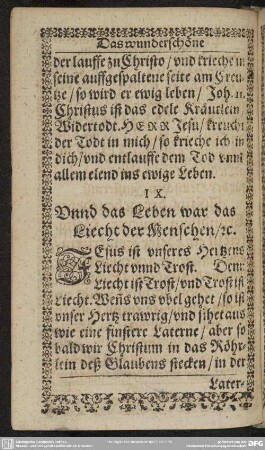 Das wunderschöne
der lauffe zu Christo / vnd krieche in
seine auffgespaltene seite am Creu-
tze / so wird er ewig leben / Joh. 11.
Christus ist das edele Kräutlein
Widertodt. HERR Jesu / kreucht
der Todt in mich / so krieche ich in
dich / vnd entlauffe dem Tod vnnd
allem elend ins ewige Leben.
IX.
Vnnd das Leben war das
Liecht der Menschen / ꝛc.
JEsus ist vnseres Hertzens
Liecht vnnd Trost. Denn
Liecht ist Trost / vnd Trost ist
Liecht. Weñs vns vbel gehet / so ist
vnser Hertz trawrig / vnd sihet aus
wie eine finstere Laterne / aber so
bald wir Christum in das Röhr-
lein deß Glaubens stecken / in der
Later-